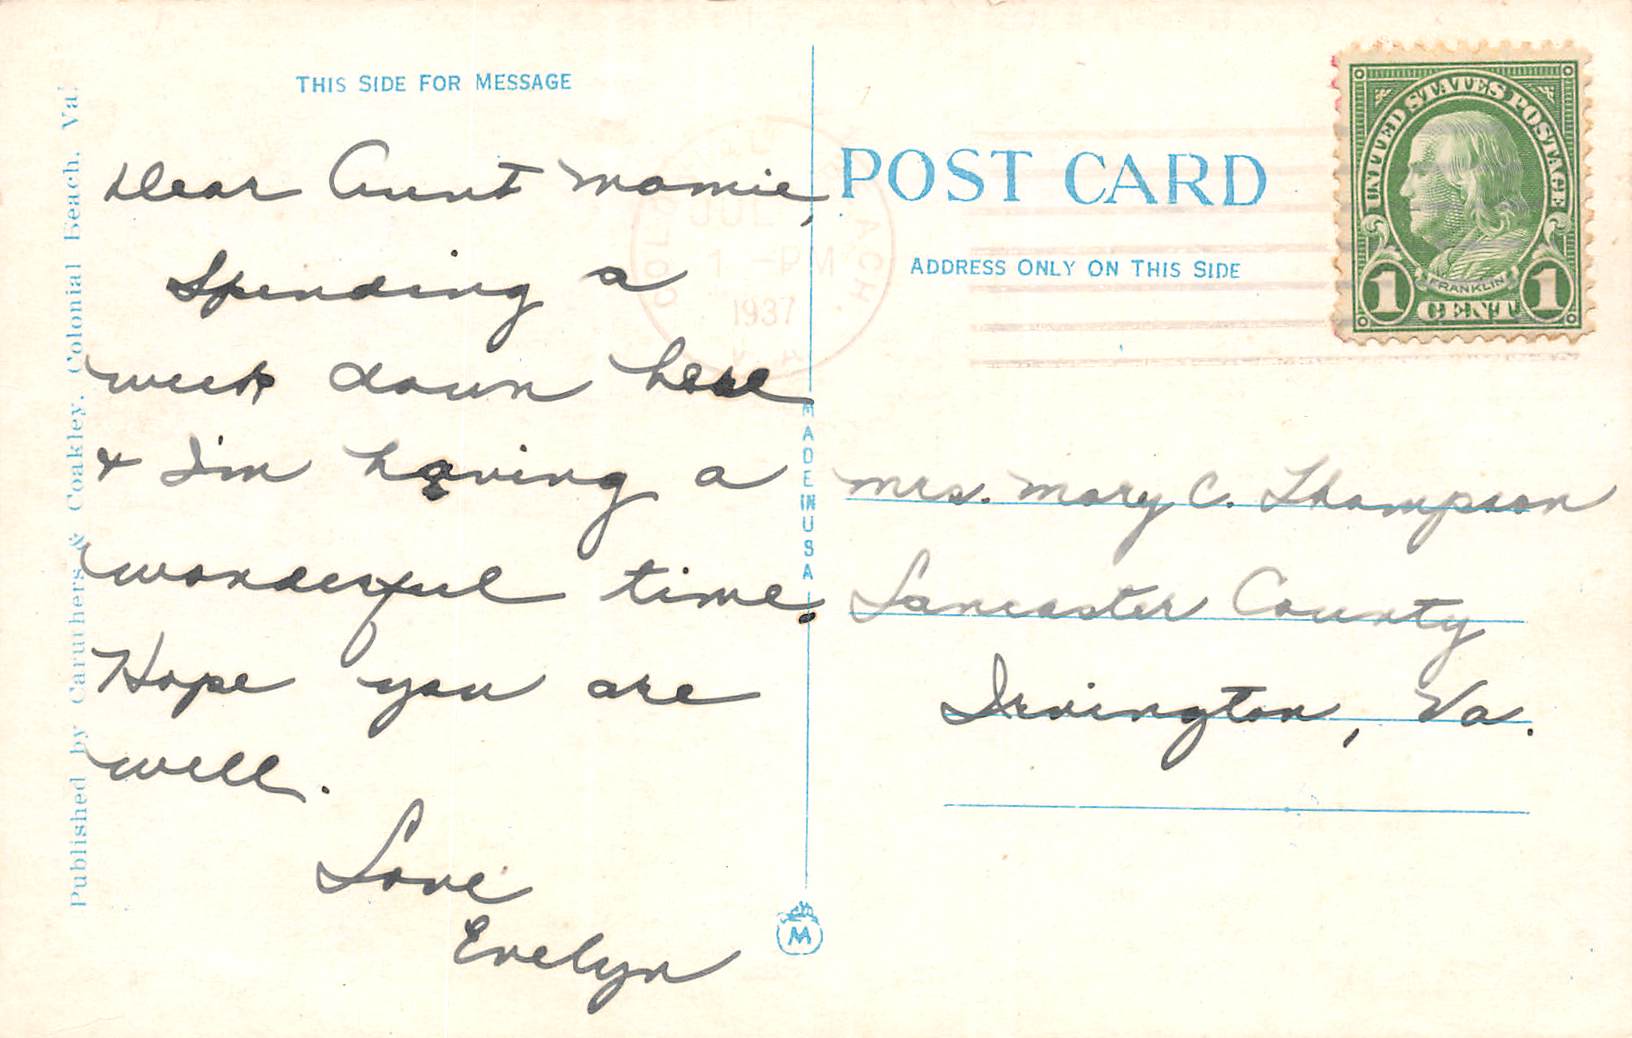 THIS SIDE FOR MESSAGE
Dear Aunt Mamie,
Spending a
week down here
& I'm having a
wonderful time.
Hope you are
well.
Love
Evelyn
Published by Caruthers & Coakley, Colonial Beach, Va.
MADE IN USA
M
POST CARD
ADDRESS ONLY ON THIS SIDE
COLONIAL BEACH
JUL
1 -PM
1937
VA.
UNITED STATES POSTAGE
FRANKLIN
1 CENT 1
Mrs. Mary C. Thompson
Lancaster County
Irvington, Va.